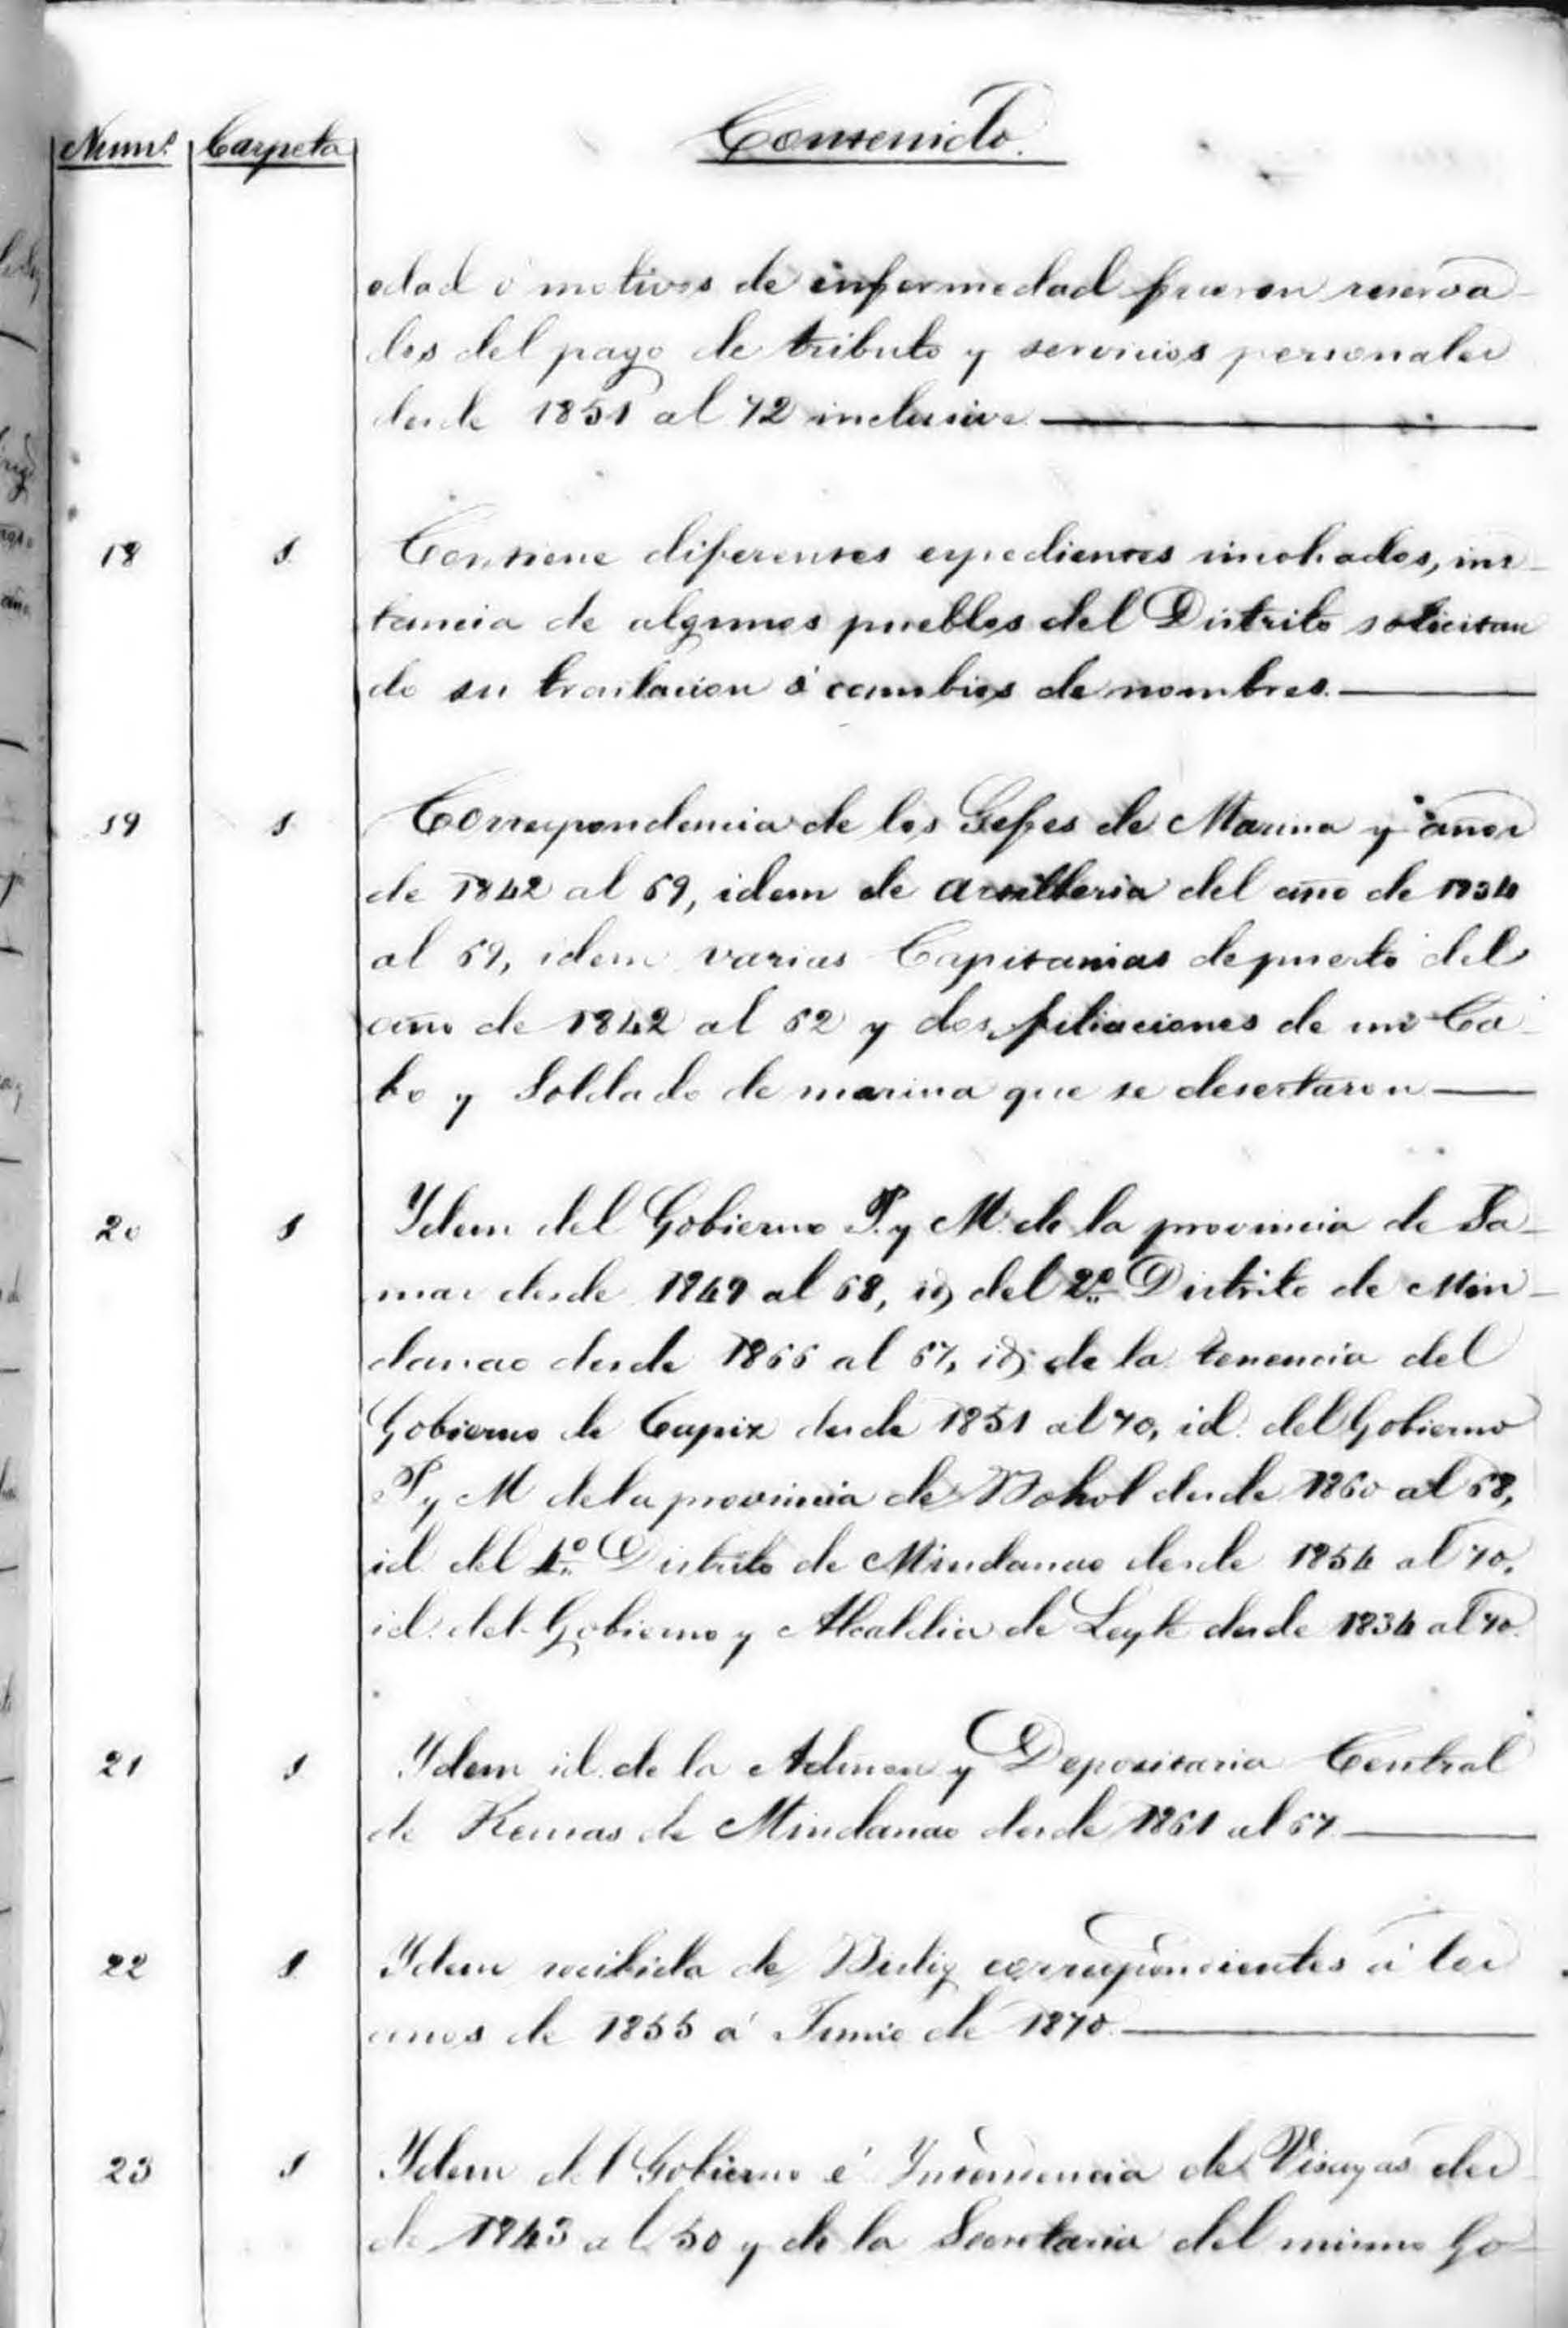 Num.ˢ Carpeta Contenido.
edad ó motivos de enfermedad fueron reserva-
dos del pago de tributo y servicios personales
desde 1851 al 72 inclusive
18 1 Contiene diferentes expedientes incohados, ins-
tancia de algunos pueblos del Distrito solicitan
do su traslacion ó cambios de nombres.
19 1 Correspondencia de los Gefes de Marina y años
de 1842 al 69, idem de Artilleria del año de 1834
al 69, idem varias Capitanias de puerto del
año de 1842 al 62 y dos filiaciones de un Ca-
bo y Soldado de marina que se desertaron
20 1 Ydem del Gobierno P. y M. de la provincia de Sa-
mar desde 1849 al 68, id, del 2º Distrito de Min-
danao desde 1866 al 67, id, de la tenencia del
Gobierno de Capiz desde 1851 al 70, id. del Gobierno
P y M de la provincia de Bohol desde 1860 al 68,
id. del 4º Distrito de Mindanao desde 1854 al 70,
id. del Gobierno y Alcaldia de Leyte desde 1834 al 70.
21 1 Ydem id. de la Admon y Depositaria Central
de Rentas de Mindanao desde 1861 al 67.
22 1 Ydem recibida de correspondientes á los
años de 1855 á Junio de 1870.
23 1 Ydem del Gobierno é Intendencia de Visayas des-
de 1843 al 50 y de la Secretaria del mismo Go-